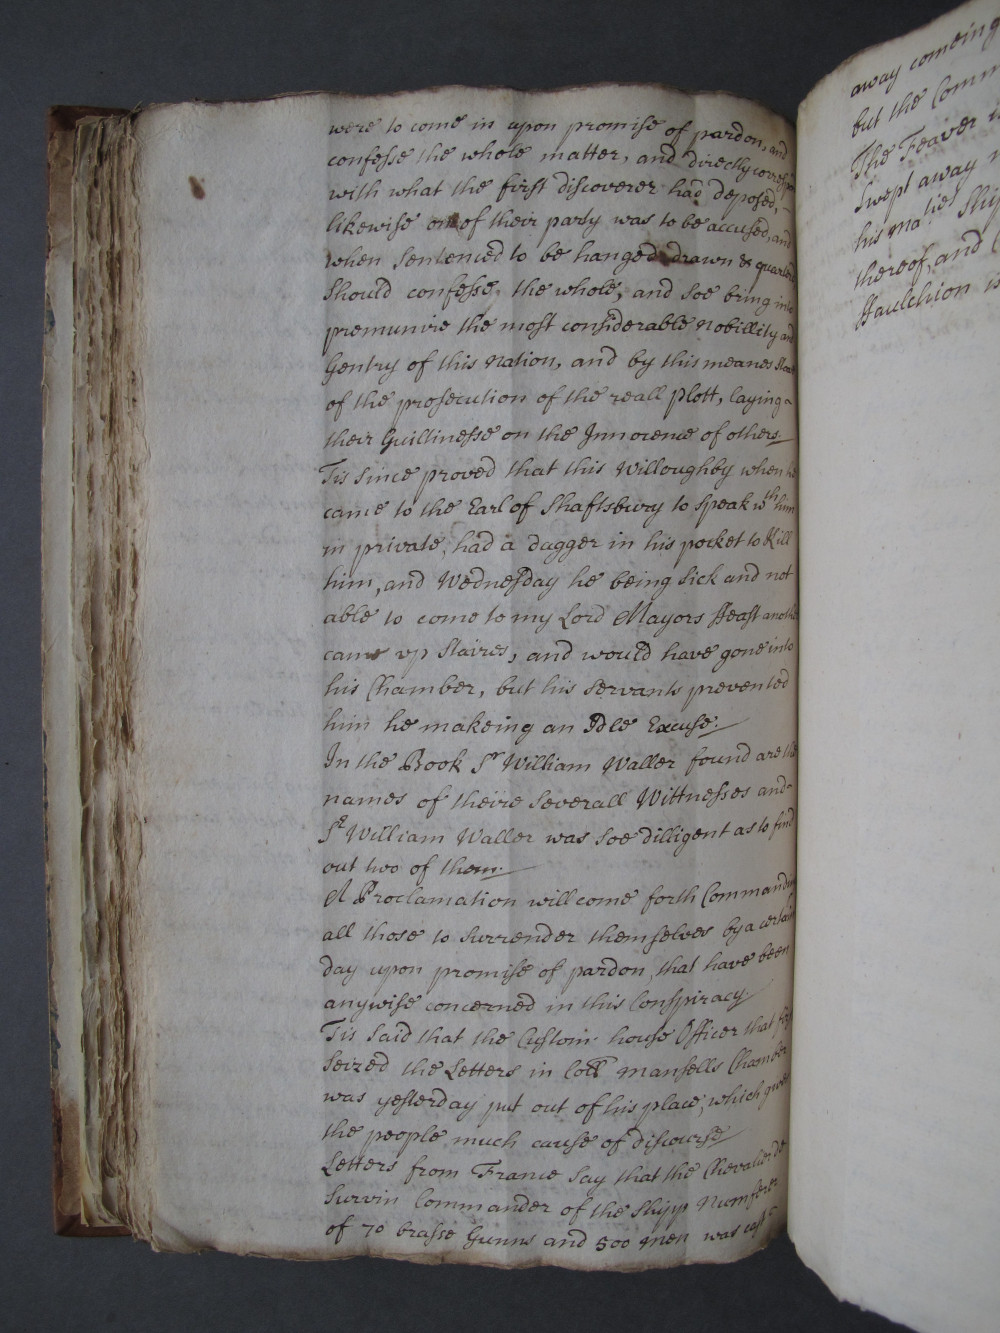 were to come in upon promise of pardon, and
confesse the whole matter, and directly
with what the first discoverer had deposed,
likewise of their party was to be accused, and
when Sentenced to be hanged drawn & quartered
should confesse, the whole, and soe bring into
premunire the most considerable Nobillity and
Gentry of this Nation, and by this meanes
of the prosecution of the reall plott, laying
their Guiltinesse on the Innocence of others.
Tis since proved that this Willoughby when he
came to the Earl of Shaftsbury to speak wth him
in private, had a dagger in his pocket to Kill
him, and Wednesday he being sick and not
able to come to my Lord Mayors Feast another
came up Staires, and would have gone into
his Chamber, but his Servants prevented
him he makeing an Idle Excuse.
In the Book Sr William Waller found are the
names of theire Severall Wittnesses and
Sr William Waller was soe dilligent as to find
out two of them.
A Proclamation will come forth Commanding
all those to surrender themselves by a certain
day upon promise of pardon, that have been
anywise concerned in this Conspiracy
Tis said that the Custom house Officer that
Seized the Letters in Coll Mansells Chamber
was yesterday put out of his place, which gives
the people much cause of discourse
Letters from France say that the Chevalier de
Survin Commander of the Shipp
of 70 brasse Gunns and 500 Men was
away comeing
but the
The Feaver
Swept away
his maties
thereof, and